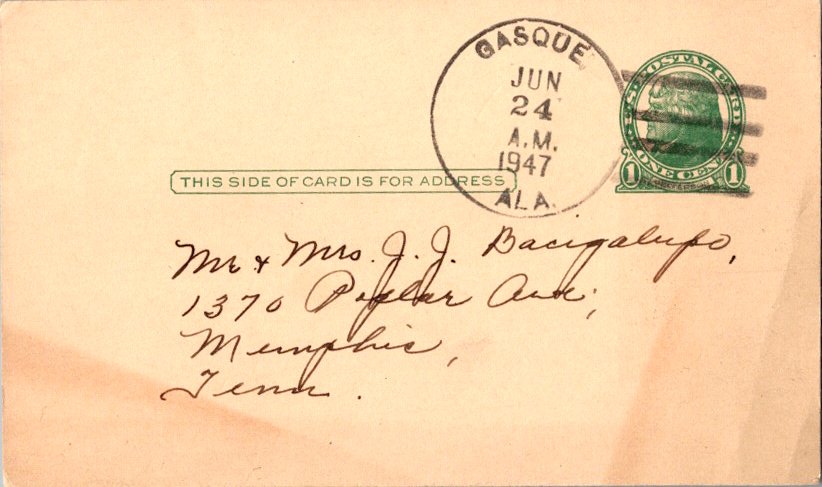 GASQUE
JUN
24
A.M.
1947
ALA.
U.S. POSTAL CARD
1 ONE CENT 1
THIS SIDE OF CARD IS FOR ADDRESS
Mr. & Mrs. J. J. Bacigalupo,
1370 Poplar Ave,
Memphis,
Tenn.